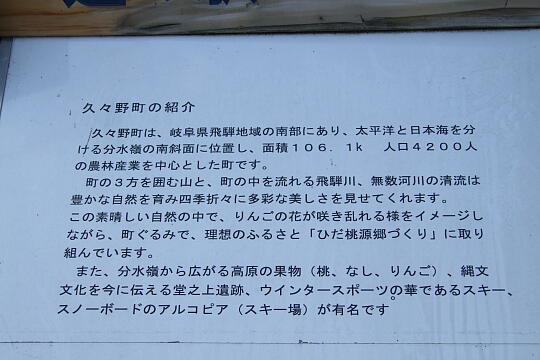 久々野町の紹介
久々野町は、岐阜県飛騨地域の南部にあり、太平洋と日本海を分
ける分水嶺の南斜面に位置し、面積１０６．１ｋ　人口４２００人
の農林産業を中心とした町です。
町の３方を囲む山と、町の中を流れる飛騨川、無数河川の清流は
豊かな自然を育み四季折々に多彩な美しさを見せてくれます。
この素晴しい自然の中で、りんごの花が咲き乱れる様をイメージし
ながら、町ぐるみで、理想のふるさと「ひだ桃源郷づくり」に取り
組んでいます。
また、分水嶺から広がる高原の果物（桃、なし、りんご）、縄文
文化を今に伝える堂之上遺跡、ウインタースポーツの華であるスキー、
スノーボードのアルコピア（スキー場）が有名です。